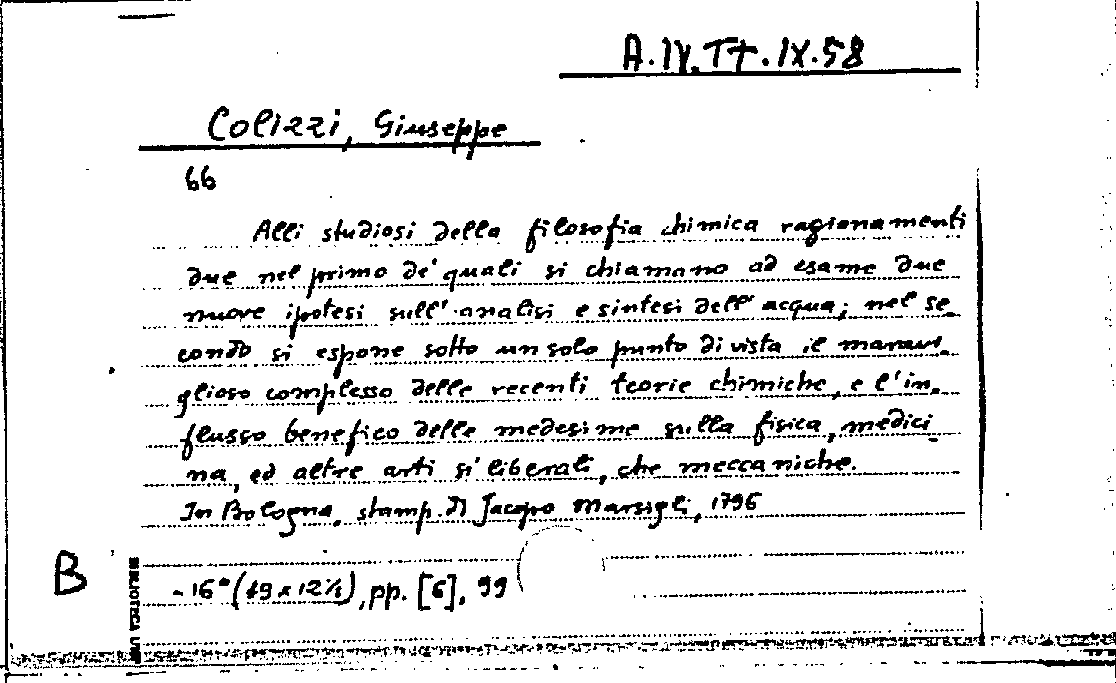 A.IV.TT.IX.58
Colizzi, Giuseppe
66
Alli studiosi della filosofia chimica ragionamenti
due nel primo de' quali si chiamano ad esame due
nuove ipotesi sull' analisi e sintesi dell' acqua; nel se_
condo si espone sotto un solo punto di vista il maravi_
glioso complesso delle recenti teorie chimiche, e l'in_
flusso benefico delle medesime sulla fisica, medici_
na, ed altre arti sì liberali, che meccaniche.
In Bologna, stamp. di Jacopo Marsigli, 1796
B
- 16° (19 x 12½), pp. [6], 99
BIBLIOTECA